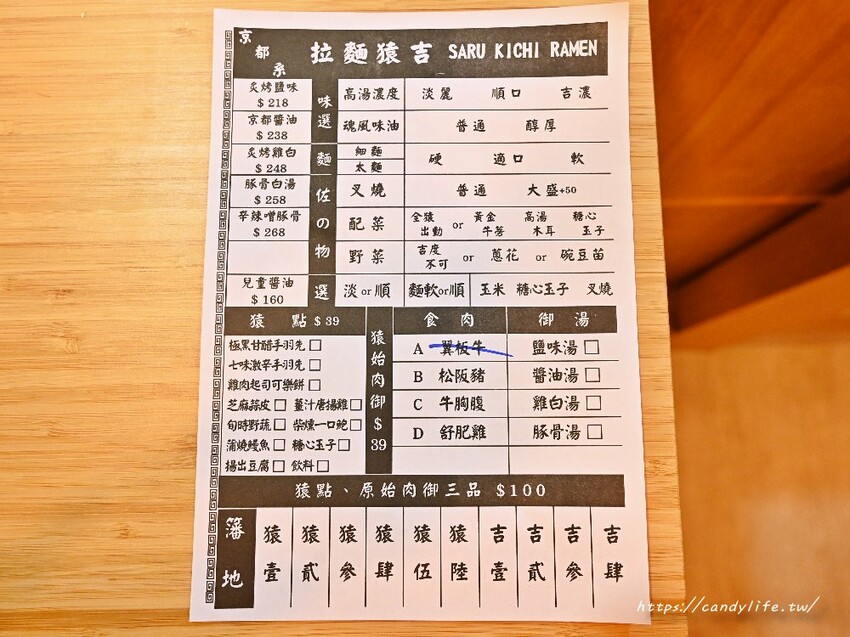 京都系 拉麵猿吉 SARU KICHI RAMEN
炙烤鹽味 $ 218
京都醬油 $ 238
炙烤雞白 $ 248
豚骨白湯 $ 258
辛辣噌豚骨 $ 268
兒童醬油 $ 160
味選
高湯濃度 淡麗 順口 吉濃
魂風味油 普通 醇厚
麵
細麵 太麵 硬 適口 軟
佐の物
叉燒 普通 大盛+50
配菜 全猿出動 or 黃金牛蒡 高湯木耳 糖心玉子
野菜 吉度不可 or 蔥花 or 碗豆苗
選
淡 or 順 麵軟or順 玉米 糖心玉子 叉燒
猿點 $ 39
極黑甘醋手羽先
七味激辛手羽先
雞肉起司可樂餅
芝麻蒜皮 薑汁唐揚雞
旬時野蔬 柴燻一口鮑
蒲燒鰻魚 糖心玉子
揚出豆腐 飲料
猿始肉御 $ 39
食肉 御湯
A 翼板牛 鹽味湯
B 松阪豬 醬油湯
C 牛胸腹 雞白湯
D 舒肥雞 豚骨湯
猿點、原始肉御三品 $100
藩地
猿壹 猿貳 猿參 猿肆 猿伍 猿陸 吉壹 吉貳 吉參 吉肆
https://candylife.tw/